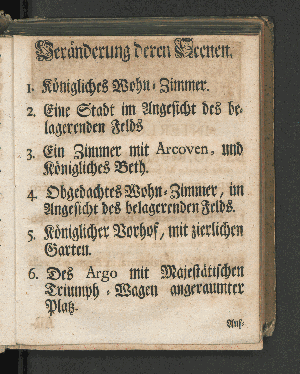 Veränderung deren Scenen.
1. Königliches Wohn-Zimmer.
2. Eine Stadt im Angesicht des be-
lagerenden Felds
3. Ein Zimmer mit Arcoven, und
Königliches Beth.
4. Obgedachtes Wohn-Zimmer, im
Angesicht des belagerenden Felds.
5. Königlicher Vorhof, mit zierlichen
Garten.
6. Des Argo mit Majestätischen
Triumph-Wagen angeraumter
Platz.
Auf-